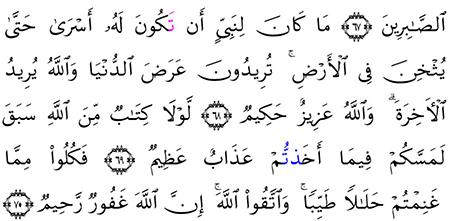 ٱلصَّـٰبِرِينَ ﴿٦٧﴾ مَا كَانَ لِنَبِىٍّ أَن تَكُونَ لَهُۥ أَسْرَىٰ حَتَّىٰ
يُثْخِنَ فِى ٱلْأَرْضِ ۚ تُرِيدُونَ عَرَضَ ٱلدُّنْيَا وَٱللَّهُ يُرِيدُ
ٱلْـَٔاخِرَةَ ۗ وَٱللَّهُ عَزِيزٌ حَكِيمٌ ﴿٦٨﴾ لَّوْلَا كِتَـٰبٌ مِّنَ ٱللَّهِ سَبَقَ
لَمَسَّكُمْ فِيمَآ أَخَذتُّمْ عَذَابٌ عَظِيمٌ ﴿٦٩﴾ فَكُلُوا۟ مِمَّا
غَنِمْتُمْ حَلَـٰلًا طَيِّبًا ۚ وَٱتَّقُوا۟ ٱللَّهَ ۚ إِنَّ ٱللَّهَ غَفُورٌ رَّحِيمٌ ﴿٧٠﴾